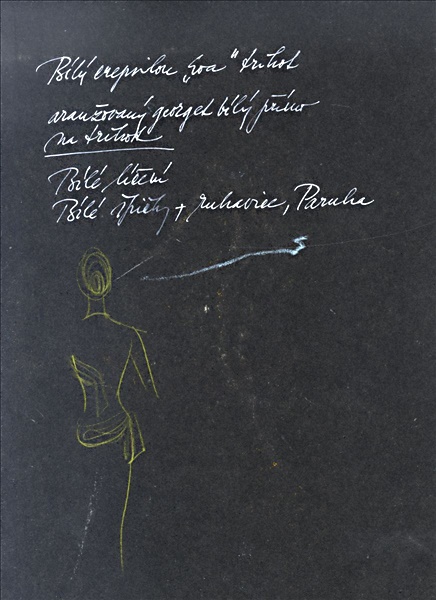 Bílý crepsilon „Eva“ trikot
aranžovaný georget bílý přímo
na trikot
Bílé líčení
Bílé špičky + rukavice, Paruka